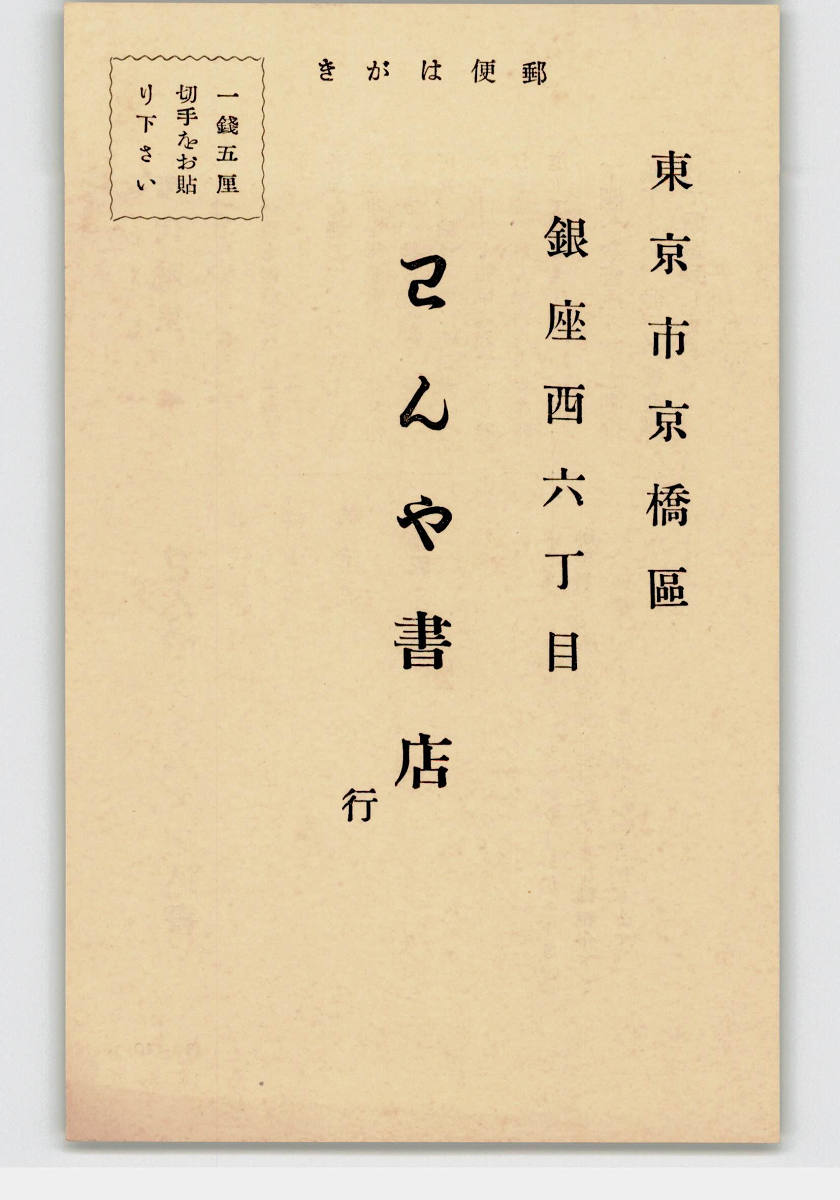 郵便はがき
東京市京橋區
銀座西六丁目
わんや書店
行
一錢五厘
切手をお貼
り下さい